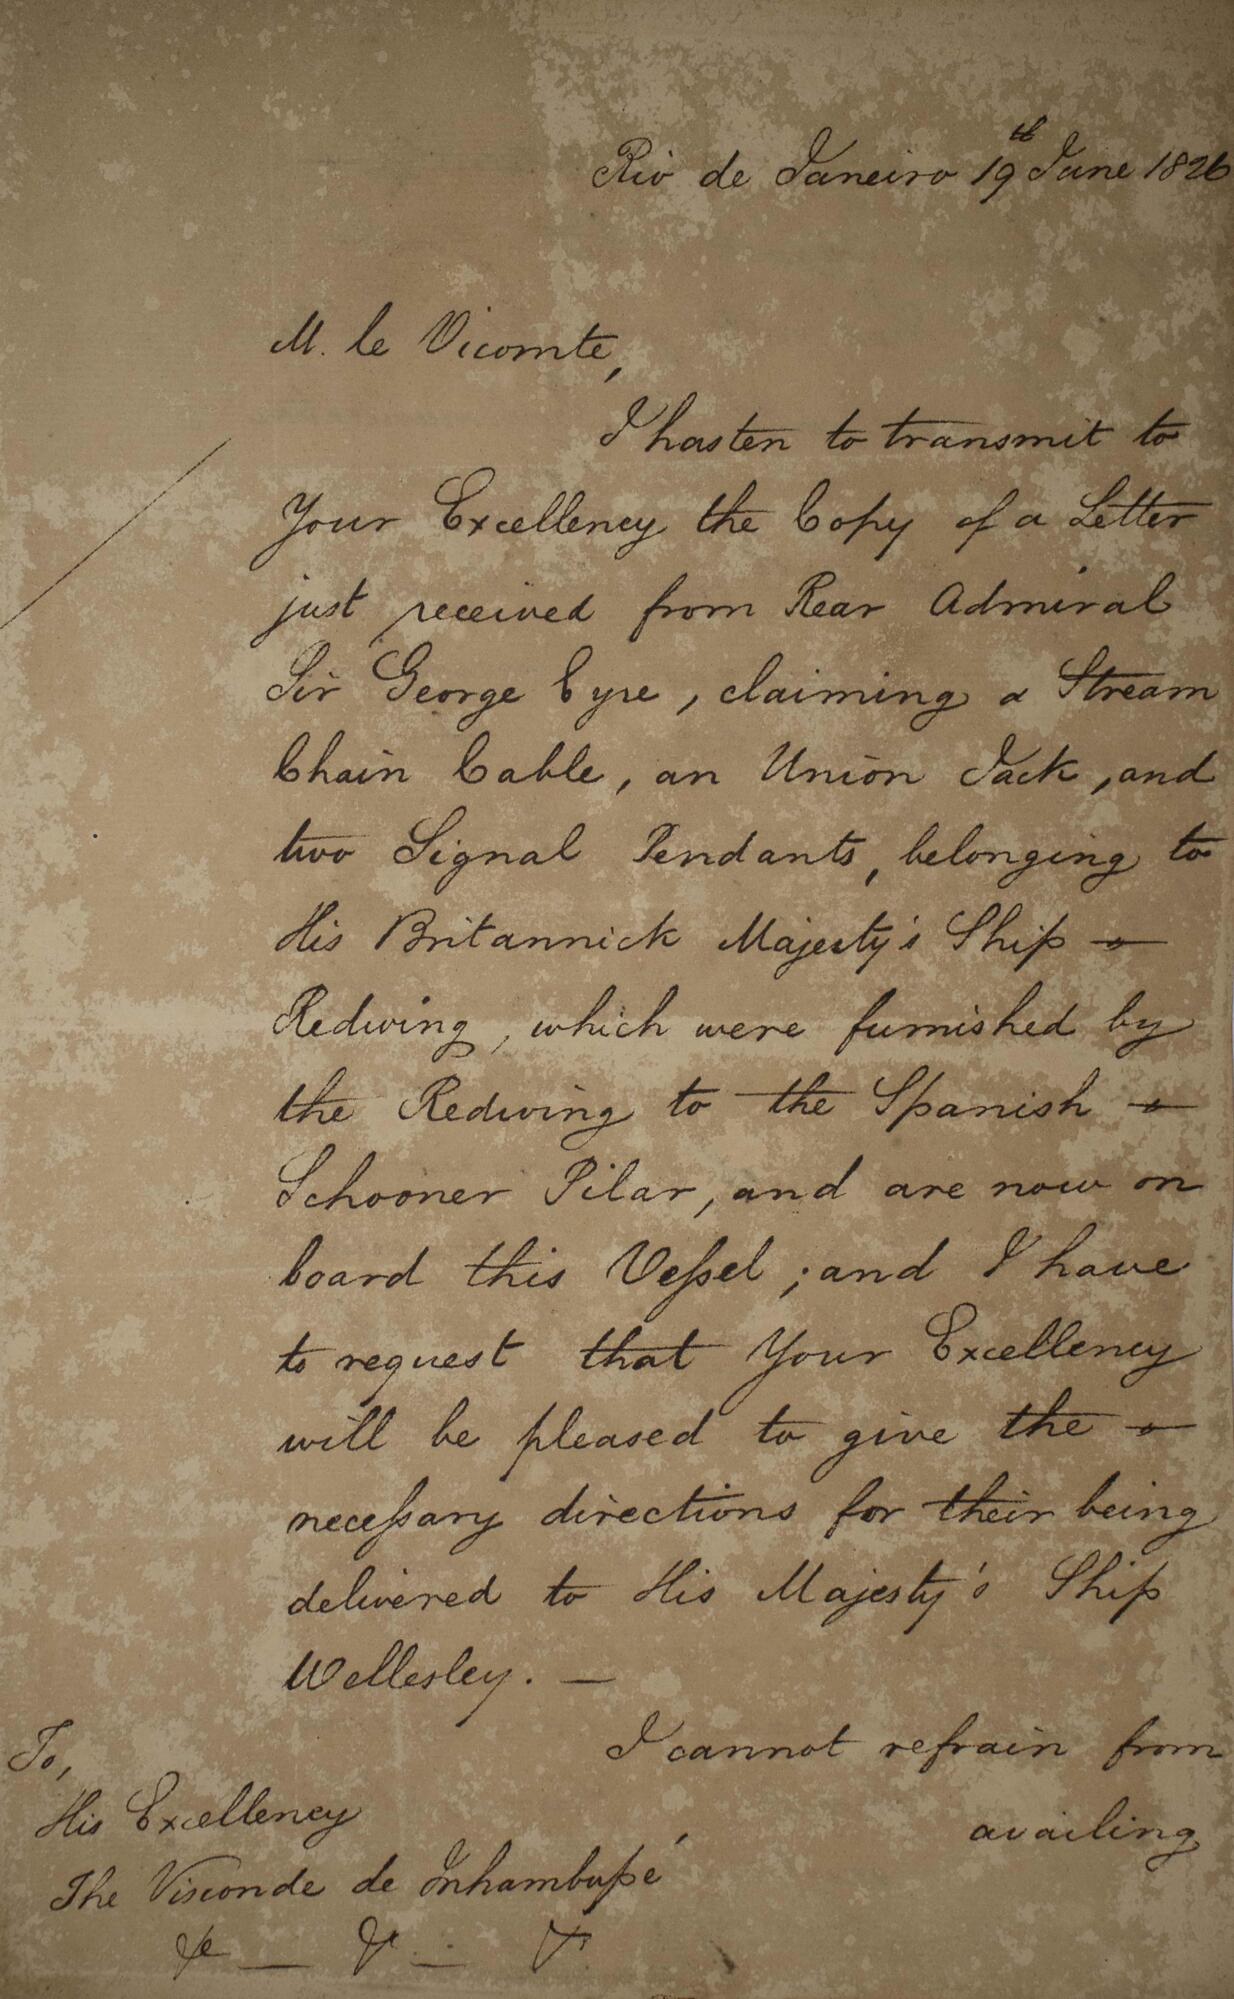 Rio de Janeiro 19th June 1826
M. le Vicomte,
I hasten to transmit to
Your Excellency the Copy of a Letter
just received from Rear Admiral
Sir George Eyre, claiming a Stream
Chain Cable, an Union Jack, and
two Signal Pendants, belonging to
His Britannick Majesty's Ship —
Redwing, which were furnished by
the Redwing to the Spanish —
Schooner Pilar, and are now on
board this Veſsel; and I have
to request that Your Excellency
will be pleased to give the —
neceſsary directions for their being
delivered to His Majesty's Ship
Wellesley. —
I cannot refrain from
availing
To,
His Excellency
The Visconde de Inhambupé
&c — &c — &c